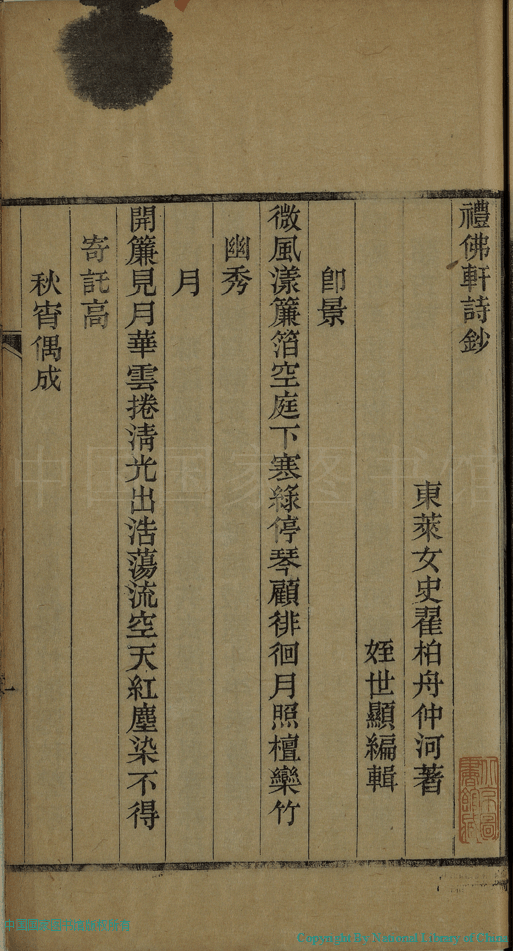 禮佛軒詩鈔
東萊女史翟柏舟仲河著
姪世顯編輯
卽景
微風漾簾箔空庭下寒綠停琴顧徘徊月照檀欒竹
幽秀
月
開簾見月華雲捲淸光出浩蕩流空天紅塵染不得
寄託高
秋宵偶成
一
中国国家图书馆
Copyright By National Library of China